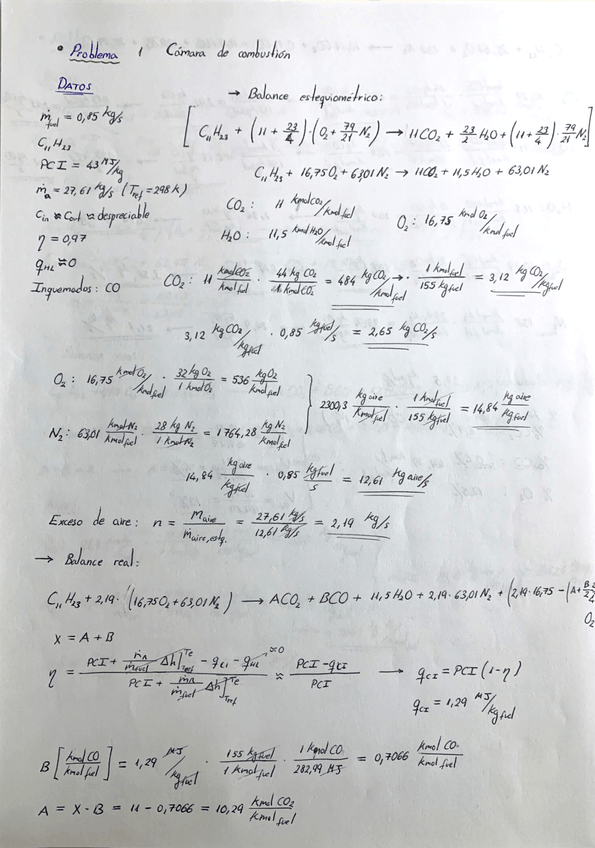 • Problema 1 Cámara de combustión
DATOS
ṁfuel = 0,85 kg/s
C₁₁H₂₃
PCI = 43 MJ/kg
ṁa = 27,61 kg/s (Tref = 298 K)
Cin ≈ Cout ≈ despreciable
η = 0,97
qHL ≈ 0
Inquemados: CO
→ Balance estequiométrico:
[C₁₁H₂₃ + (11 + 23/4)·(O₂ + 79/21 N₂) → 11CO₂ + 23/2 H₂O + (11 + 23/4)·79/21 N₂]
C₁₁H₂₃ + 16,75O₂ + 63,01N₂ → 11CO₂ + 11,5H₂O + 63,01N₂
CO₂: 11 kmolCO₂/kmolfuel
O₂: 16,75 kmol O₂/kmolfuel
H₂O: 11,5 kmol H₂O/kmolfuel
CO₂: 11 kmolCO₂/kmolfuel · 44 kg CO₂/1 kmolCO₂ = 484 kg CO₂/kmolfuel · 1 kmolfuel/155 kgfuel = 3,12 kg CO₂/kgfuel
3,12 kg CO₂/kgfuel · 0,85 kgfuel/s = 2,65 kg CO₂/s
O₂: 16,75 kmol O₂/kmolfuel · 32 kg O₂/1 kmol O₂ = 536 kg O₂/kmolfuel
N₂: 63,01 kmol N₂/kmolfuel · 28 kg N₂/1 kmol N₂ = 1764,28 kg N₂/kmolfuel
} 2300,3 kg aire/kmolfuel · 1 kmolfuel/155 kgfuel = 14,84 kg aire/kgfuel
14,84 kg aire/kgfuel · 0,85 kgfuel/s = 12,61 kg aire/s
Exceso de aire: n = ṁaire/ṁaire,estq. = 27,61 kg/s / 12,61 kg/s = 2,19 kg/s
→ Balance real:
C₁₁H₂₃ + 2,19·(16,75O₂ + 63,01N₂) → ACO₂ + BCO + 11,5H₂O + 2,19·63,01N₂ + (2,19·16,75 − (A +
O₂
X = A + B
η = (PCI + ṁA/ṁfuel Δh]Te Tref − qCI − qHL ≈0) / (PCI + ṁA/ṁfuel Δh]Te Tref) ≈ (PCI − qCI)/PCI → qCI = PCI(1−η)
qCI = 1,29 MJ/kgfuel
B [kmol CO/kmolfuel] = 1,29 MJ/kgfuel · 155 kgfuel/1 kmolfuel · 1 kmol CO/282,99 MJ = 0,7066 kmol CO/kmolfuel
A = X − B = 11 − 0,7066 = 10,29 kmol CO₂/kmolfuel